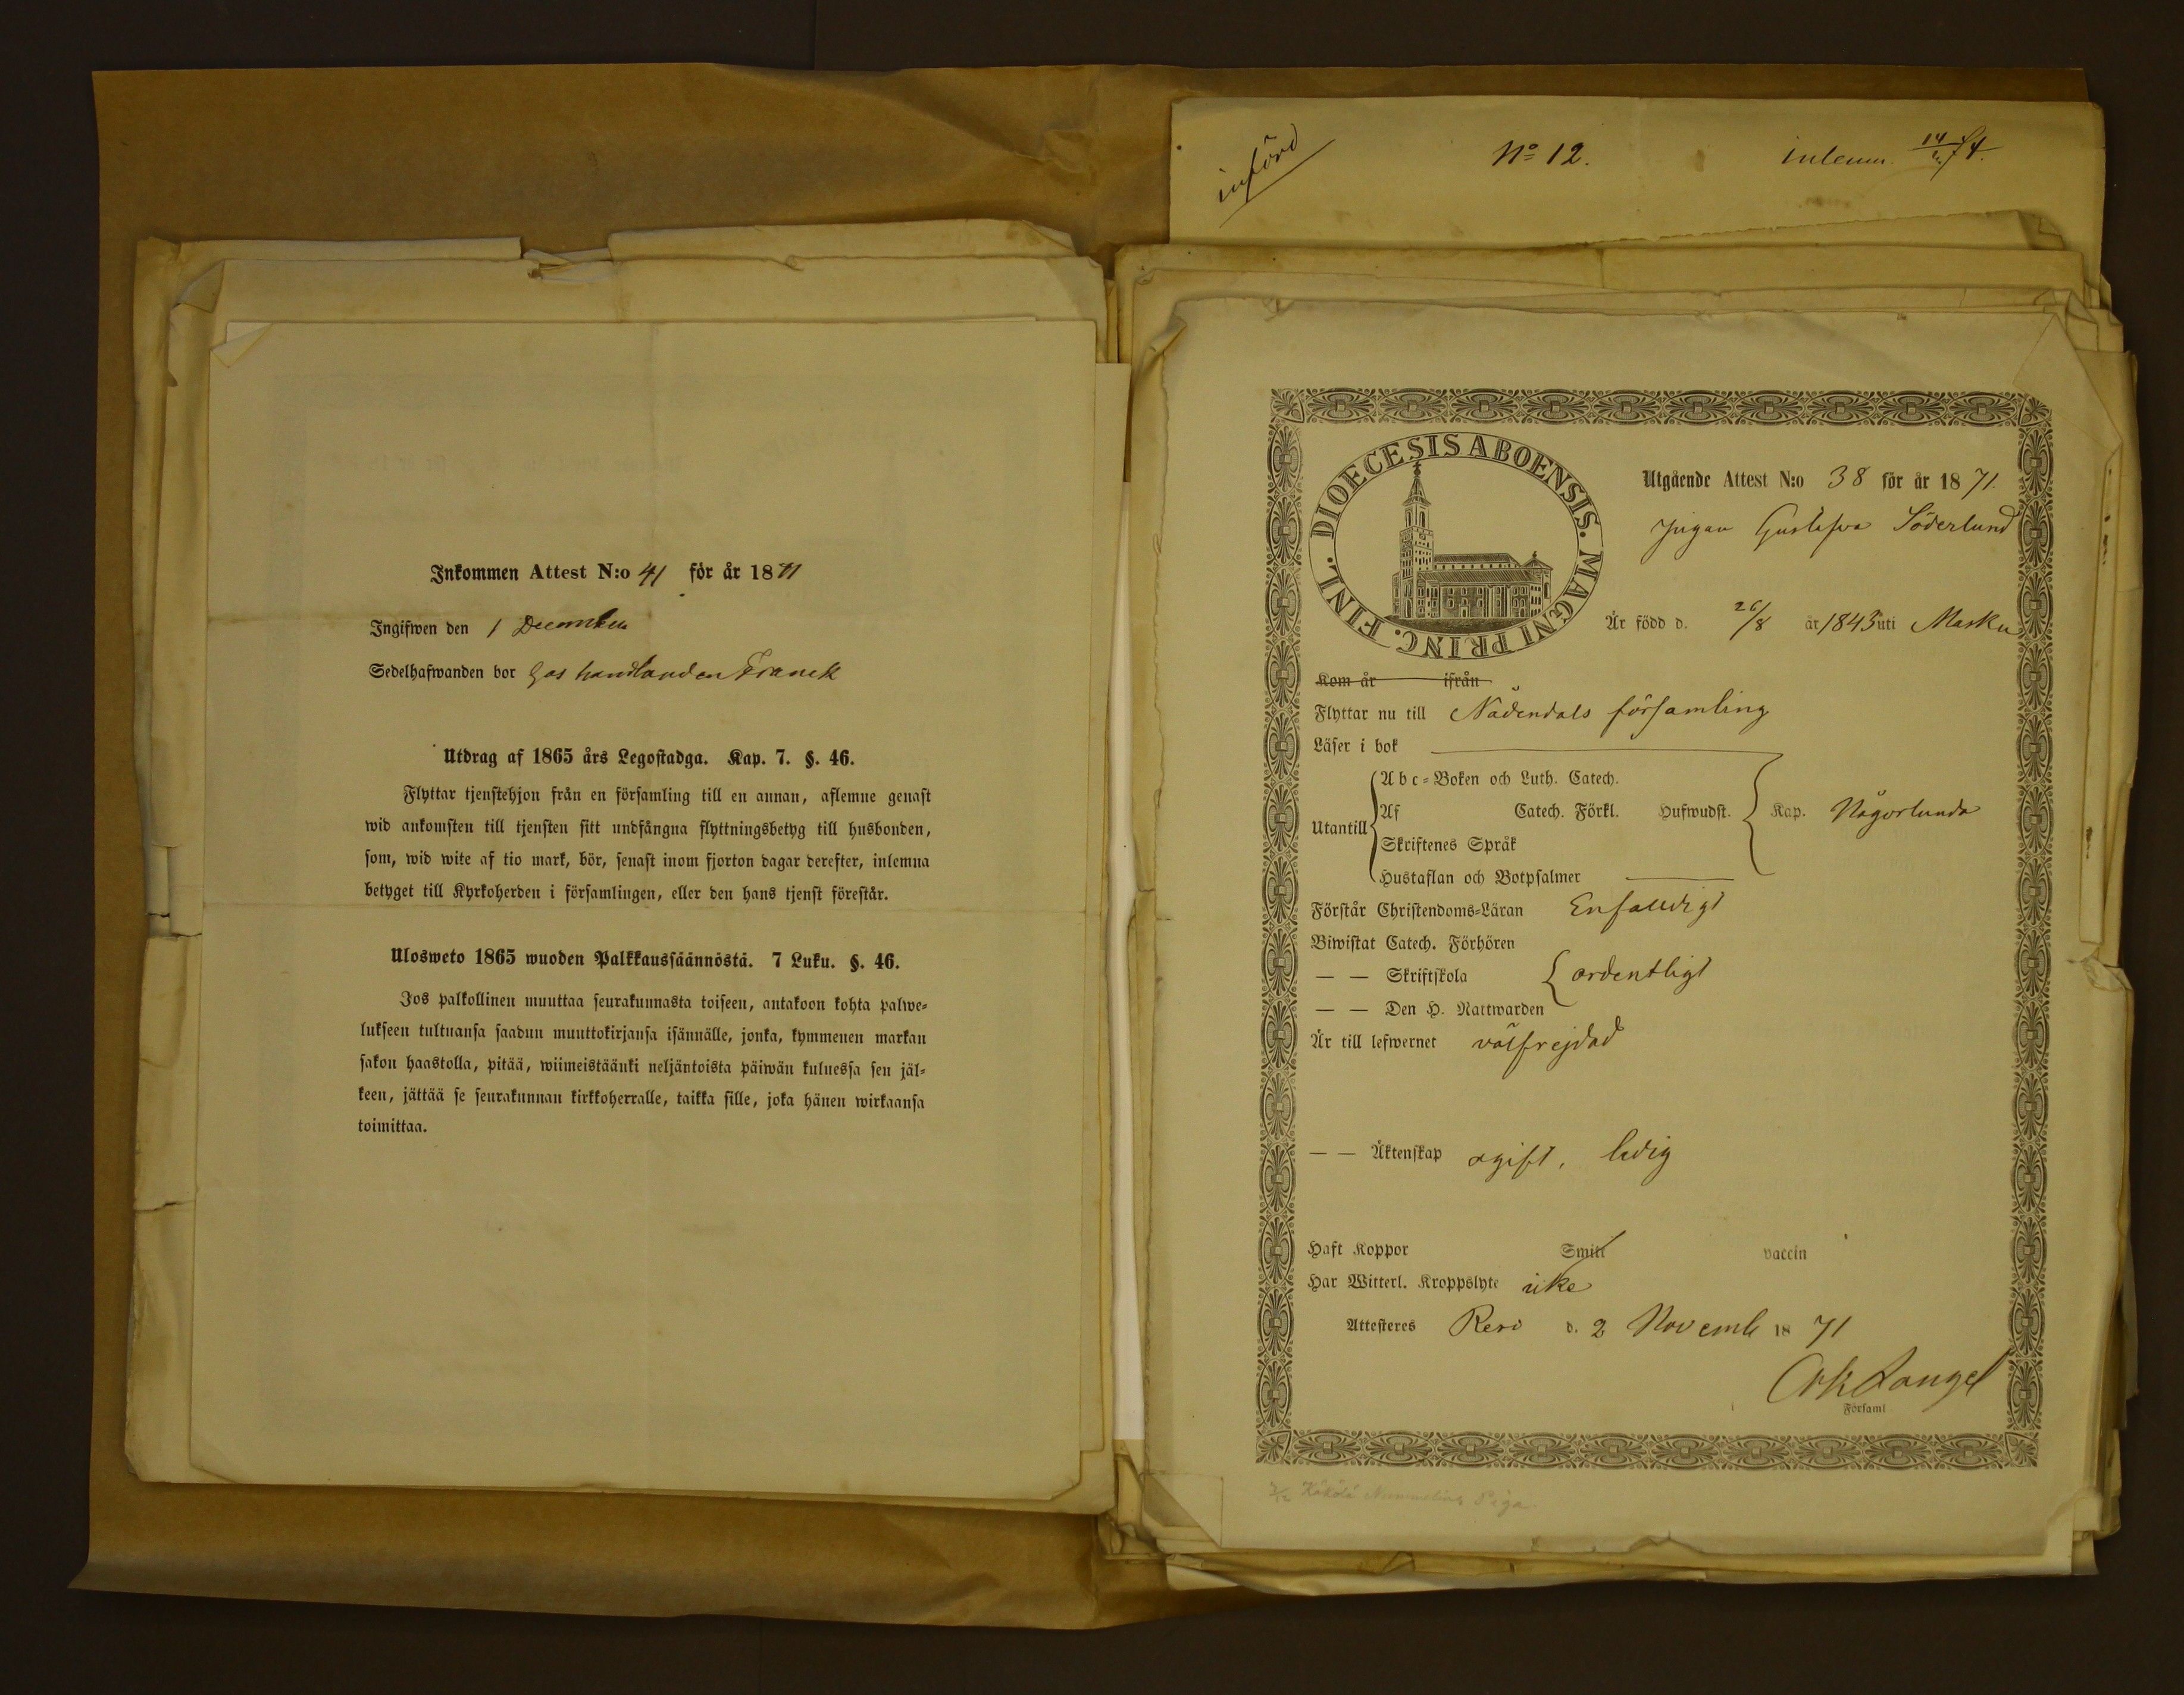 Inkommen Attest N:o 41 för år 1871
Ingifwen den 1 December
Sedelhafwanden bor hos handlanden Franck
Utdrag af 1865 års Legostadga. Kap. 7. §. 46.
Flyttar tjenstehjon från en församling till en annan, aflemne genast
wid ankomsten till tjensten sitt undfångna flyttningsbetyg till husbonden,
som, wid wite af tio mark, bör, senast inom fjorton dagar derefter, inlemna
betyget till Kyrkoherden i församlingen, eller den hans tjenst förestår.
Ulosweto 1865 wuoden Palkkaussäännöstä. 7 Luku. §. 46.
Jos palkollinen muuttaa seurakunnasta toiseen, antakoon kohta palwe-
lukseen tultuansa saadun muuttokirjansa isännälle, jonka, kymmenen markan
sakon haastolla, pitää, wiimeistäänki neljäntoista päiwän kuluessa sen jäl-
keen, jättää se seurakunnan kirkkoherralle, taikka sille, joka hänen wirkaansa
toimittaa.
införd
No 12.
inlemn. 14/ 74.
DIOECESIS ABOENSIS. MAGNI PRINC. FINL.
Utgående Attest N:o 38 för år 1871.
Pigan Gustafva Söderlund
Är född d. 26/8 år 1843 uti Masku
Kom år ifrån
Flyttar nu till Nådendals församling
Läser i bok
Utantill
Abc-Boken och Luth. Catech.
Af Catech. Förkl. Hufwudst. Kap. Någorlunda
Skriftenes Språk
Hustaflan och Botpsalmer
Förstår Christendoms-Läran Enfaldigt
Biwistat Catech. Förhören
— — Skriftskola ordentligt
— — Den H. Nattwarden
Är till lefwernet välfrejdad
— — Äktenskap ogift, ledig
Haft Koppor Smitt vaccin
Har Witterl. Kroppslyte icke
Attesteres Reso d. 2 Novemb 1871
Langel
Församl
Piga